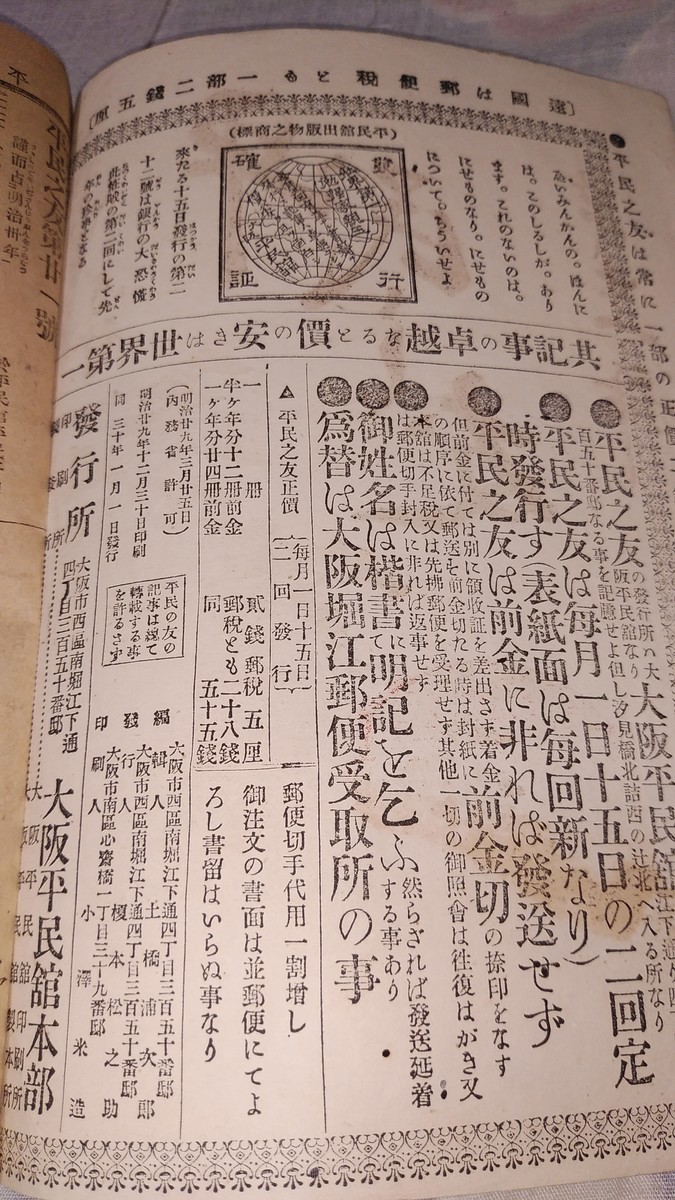 (遠國は郵便税とも一部二錢五厘)
●平民之友は常に一部の正價
(平民館出版物之商標)
號
確
行
証
へいみんかんの。ほんに
は。このしるしが。あり
ます。これのないのは。
にせものなり。にせもの
について。ちういせよ
來たる十五日發行の第二
十二號は銀行の大恐慌
其記事の卓越なると價の安きは世界第一
●平民之友の發行所は大阪平民館なり
百五十番邸なる事を記憶せよ但し汐見橋北詰西の辻北へ入る所なり
●平民之友は毎月一日十五日の二回定
時發行す(表紙面は毎回新なり)
●平民之友は前金に非れば發送せず
但前金に付ては別に領收証を差出さず着金
の順序に依て郵送を前金切たる時は封紙に前金切の捺印をなす
●本館は不足税又は先拂郵便を受理せず其他一切の御照會は往復はがき又
は郵便切手封入に非れば返事せず
●御姓名は楷書にて明記を乞ふ然らざれば發送延着
する事あり
●爲替は大阪堀江郵便受取所の事
▲平民之友正價(毎月一日十五日二回發行)
一冊 貳錢郵税五厘
半ヶ年分十二冊前金 郵税とも二十八錢
一ヶ年分廿四冊前金 同 五十五錢
郵便切手代用一割増し
御注文の書面は並郵便にてよ
ろし書留はいらぬ事なり
(明治廿九年三月廿五日
内務省許可)
明治廿九年十二月三十日印刷
同三十年一月一日發行
平民の友の
記事は總て
轉載する事
を許るさず
大阪市西區南堀江下通四丁目三百五十番邸
編輯人 土橋浦次郎
大阪市西區南堀江下通四丁目三百五十番邸
發行人 榎本松之助
大阪市南區心齋橋一丁目三十九番邸
印刷人 小澤米造
發行所
大阪市西區南堀江下通
四丁目三百五十番邸
大阪平民館本部
印刷所 大阪平民館印刷所
平民之友第廿一號
明治卅年